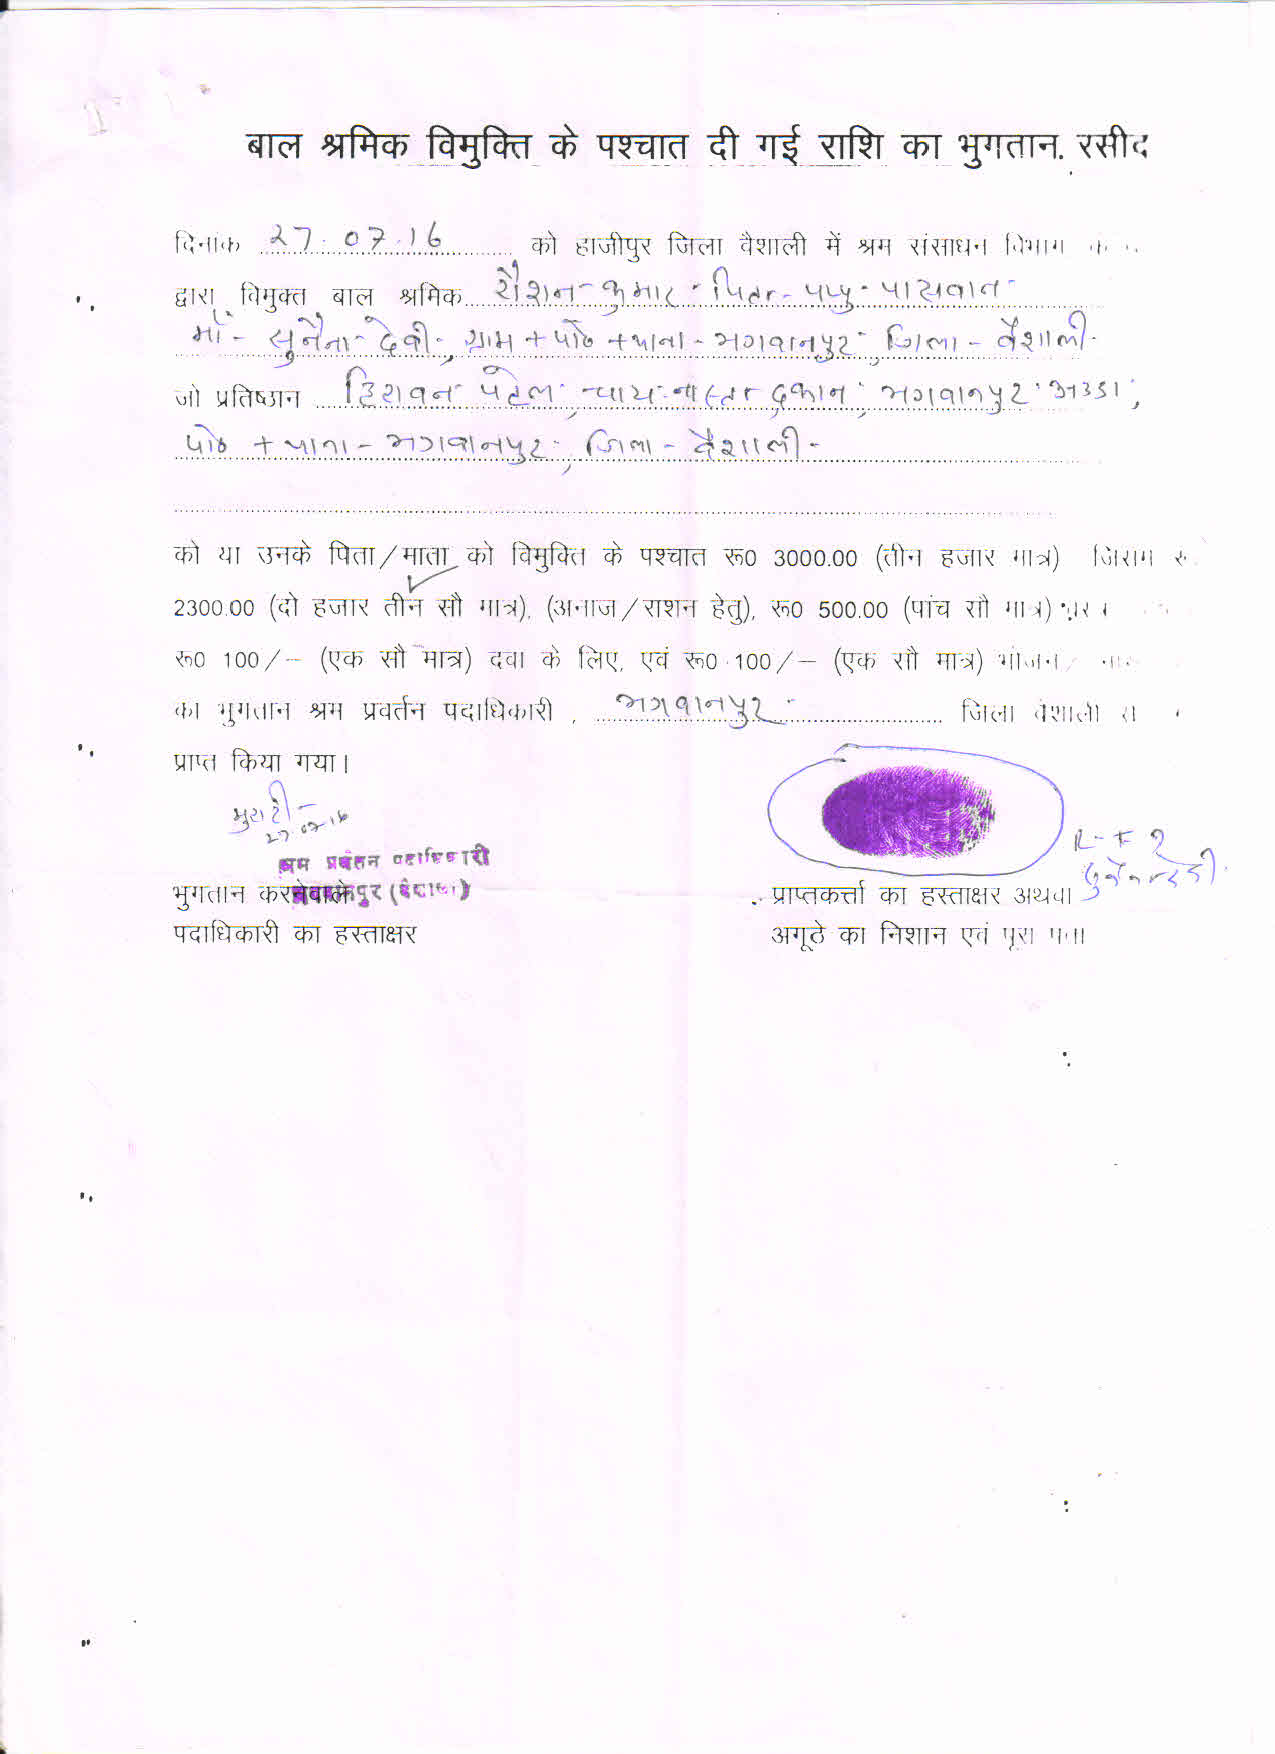 बाल श्रमिक विमुक्ति के पश्चात दी गई राशि का भुगतान. रसीद
दिनांक 27.07.16 को हाजीपुर जिला वैशाली में श्रम संसाधन विभाग के
द्वारा विमुक्त बाल श्रमिक रौशन कुमार पिता- पप्पु पासवान
माँ - सुनैना देवी, ग्राम + पो० + थाना - भगवानपुर, जिला - वैशाली
जो प्रतिष्ठान पटेल दुकान, भगवानपुर अड्डा,
पो० + थाना - भगवानपुर, जिला - वैशाली -
को या उनके पिता/माता को विमुक्ति के पश्चात रू0 3000.00 (तीन हजार मात्र) जिसमे रू
2300.00 (दो हजार तीन सौ मात्र), (अनाज/राशन हेतु), रू0 500.00 (पांच सौ मात्र)
रू0 100/- (एक सौ मात्र) दवा के लिए, एवं रू0 100/- (एक सौ मात्र) भोजन/
का भुगतान श्रम प्रवर्तन पदाधिकारी , भगवानपुर जिला वैशाली से
प्राप्त किया गया।
27.07.16
श्रम प्रवर्तन पदाधिकारी
भुगतान करनेवाले
पदाधिकारी का हस्ताक्षर
प्राप्तकर्त्ता का हस्ताक्षर अथवा
अगूठे का निशान एवं पूरा पता